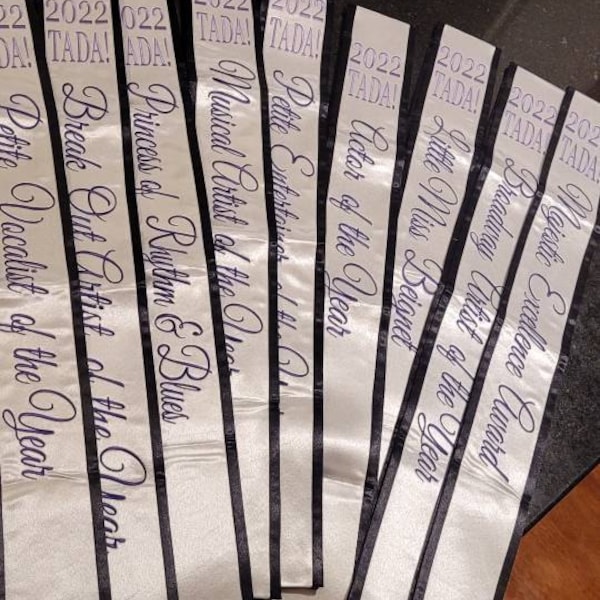 2022
TADA!
Petite Vocalist of the Year
2022
TADA!
Break Out Artist of the Year
2022
TADA!
Princess of Rhythm & Blues
2022
TADA!
Musical Artist of the Year
2022
TADA!
Petite Entertainer of the
2022
TADA!
Actor of the Year
2022
TADA!
Little Miss Beignet
2022
TADA!
Broadway Artist of the Year
2022
TADA!
Majestic Excellence Award